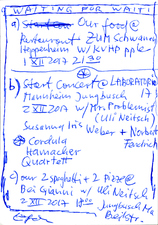 WAITING FOR WAITI
a) Our food @
Restaurant ZUM Schwanen
Heppenheim w/ KVHP pple
1 XII 2017 21:30
b) Start Concert @ LABORATORIO
Mannheim Jungbusch 17
2 XII 2017 w/ Mr. Problemist
(Uli Neitsch)
Susanne Iris Weber + Norbert
Cordula
Hamacher
Quartett
c) our 2 spaghetti + 2 Pizze @
Bei Gianni w/ Uli Neitsch
2 XII 2017 18:00 Jungbusch Ma